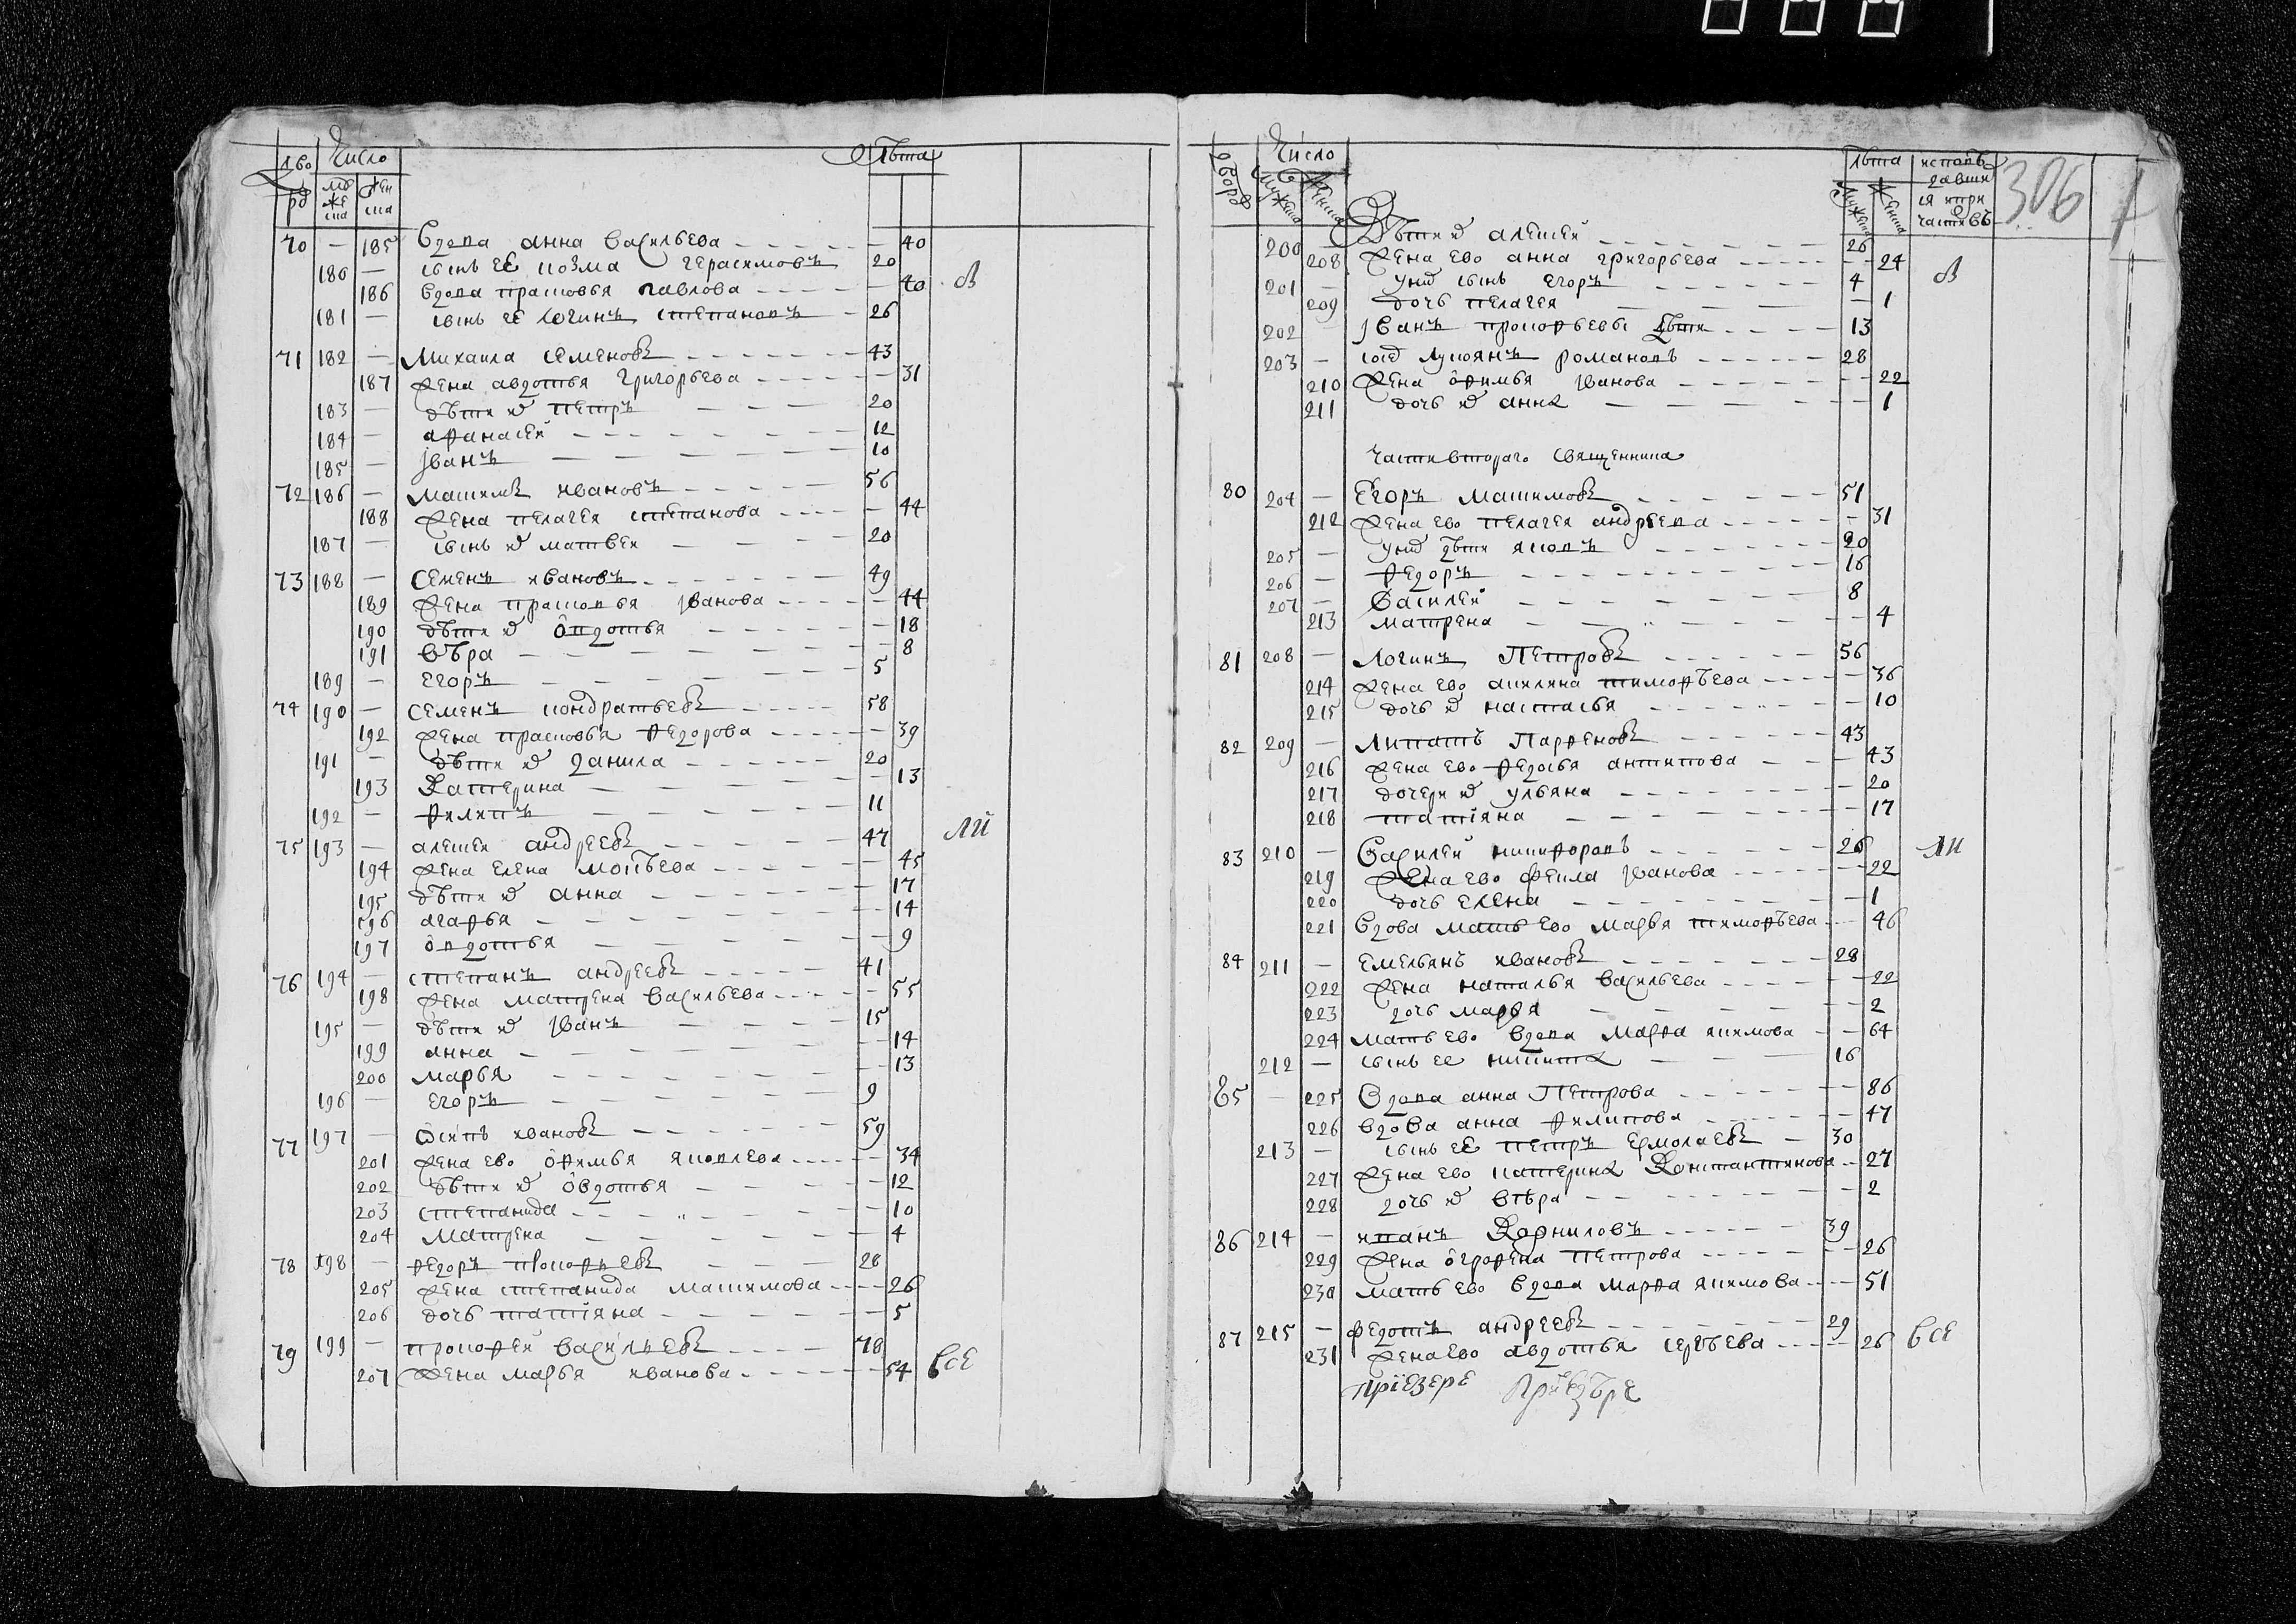 Число
Лѣта
70 — 185 Вдова анна васильева — 40
180 — сынъ ее козма герасимовъ 20
186 вдова прасковья павлова — 40
181 — сынъ ее логинъ степановъ — 26
71 182 — Михаила семеновъ — 43
187 жена авдотья григорьева — 31
183 — дѣти их петръ — 20
184 — афанасей — 12
185 — Іванъ — 10
72 186 — максимъ ивановъ — 56
188 жена пелагея степанова — 44
187 — сынъ их матвеи — 20
73 188 — семенъ ивановъ — 49
189 жена прасковья Іванова — 44
190 дѣти их овдотья — 18
191 вѣра — 8
189 — егоръ — 5
74 190 — семенъ кондратьевъ — 58
192 жена прасковья федорова — 39
191 — дѣти их данила — 20
193 Катерина — 13
192 — филипъ — 11
75 193 — алексеи андреевъ — 47
194 жена елена — 45
195 дѣти их анна — 17
196 агафья — 14
197 овдотья — 9
76 194 — степанъ андреевъ — 41
198 жена матрена васильева — 55
195 — дѣти их Іванъ — 15
199 анна — 14
200 марья — 13
196 — егоръ — 9
77 197 — осипъ ивановъ — 59
201 жена ево офимья яковлева — 34
202 дѣти их овдотья — 12
203 степанида — 10
204 матрена — 4
78 198 — федоръ прокофьевъ — 28
205 жена степанида максимова — 26
206 дочь татіяна — 5
79 199 — прокофеи васильевъ — 78
207 жена марья иванова — 54 все
двором
Число
мужеска
женска
лѣта
306
200 — Дѣти их алексеи — 26
208 жена ево анна григорьева — 24
201 — у них сынъ егоръ — 4
209 дочь пелагея — 1
202 — Іванъ прокофьевы дѣти — 13
203 — лукоянъ романовъ — 28
210 жена офимья Іванова — 22
211 дочь их анна — 1
части втораго священника
80 204 — Егоръ максимовъ — 51
212 жена ево пелагея андреева — 31
205 — у них дѣти яковъ — 20
206 — федоръ — 16
207 — василеи — 8
213 матрена — 4
81 208 — логинъ Петровъ — 56
214 жена ево акилина тимофѣева — 36
215 дочь их настасья — 10
82 209 — Липатъ Парфеновъ — 43
216 жена ево федосья антипова — 43
217 дочери их ульяна — 20
218 татіяна — 17
83 210 — Василеи никифоровъ — 26
219 жена ево фекла Іванова — 22
220 дочь елена — 1
221 вдова мать ево марья тимофѣева — 46
84 211 — емельянъ ивановъ — 28
222 жена наталья васильева — 22
223 дочь марья — 2
224 мать ево вдова марфа якимова — 64
212 — сынъ ее никита — 16
85 — 225 Вдова анна Петрова — 86
226 вдова анна филипова — 47
213 — сынъ ее петръ ермолаевъ — 30
227 жена ево катерина Константинова — 27
228 дочь их вѣра — 2
86 214 — иванъ Корниловъ — 39
229 жена ографена петрова — 26
230 мать ево вдова марфа якимова — 51
87 215 — федотъ андреевъ — 29
231 жена ево авдотья сергѣева — 26 все
пріезере